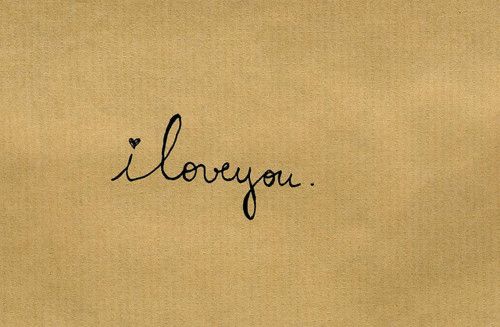 i love you.